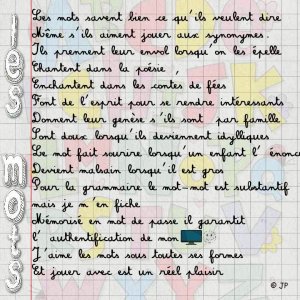 les mots
Les mots savent bien ce qu'ils veulent dire
Même s'ils aiment jouer aux synonymes.
Ils prennent leur envol lorsqu'on les épelle
Chantent dans la poésie ,
Enchantent dans les contes de fées
Font de l'esprit pour se rendre intéressants
Donnent leur genèse s'ils sont par famille
Sont doux lorsqu'ils deviennent idylliques
Le mot fait sourire lorsqu'un enfant l' énonce
Devient malsain lorsqu'il est gros
Pour la grammaire le mot-mot est substantif
mais je m'en fiche
Mémorisé en mot de passe il garantit
l' authentification de mon
J'aime les mots sous toutes ses formes
Et jouer avec est un réel plaisir
© JP